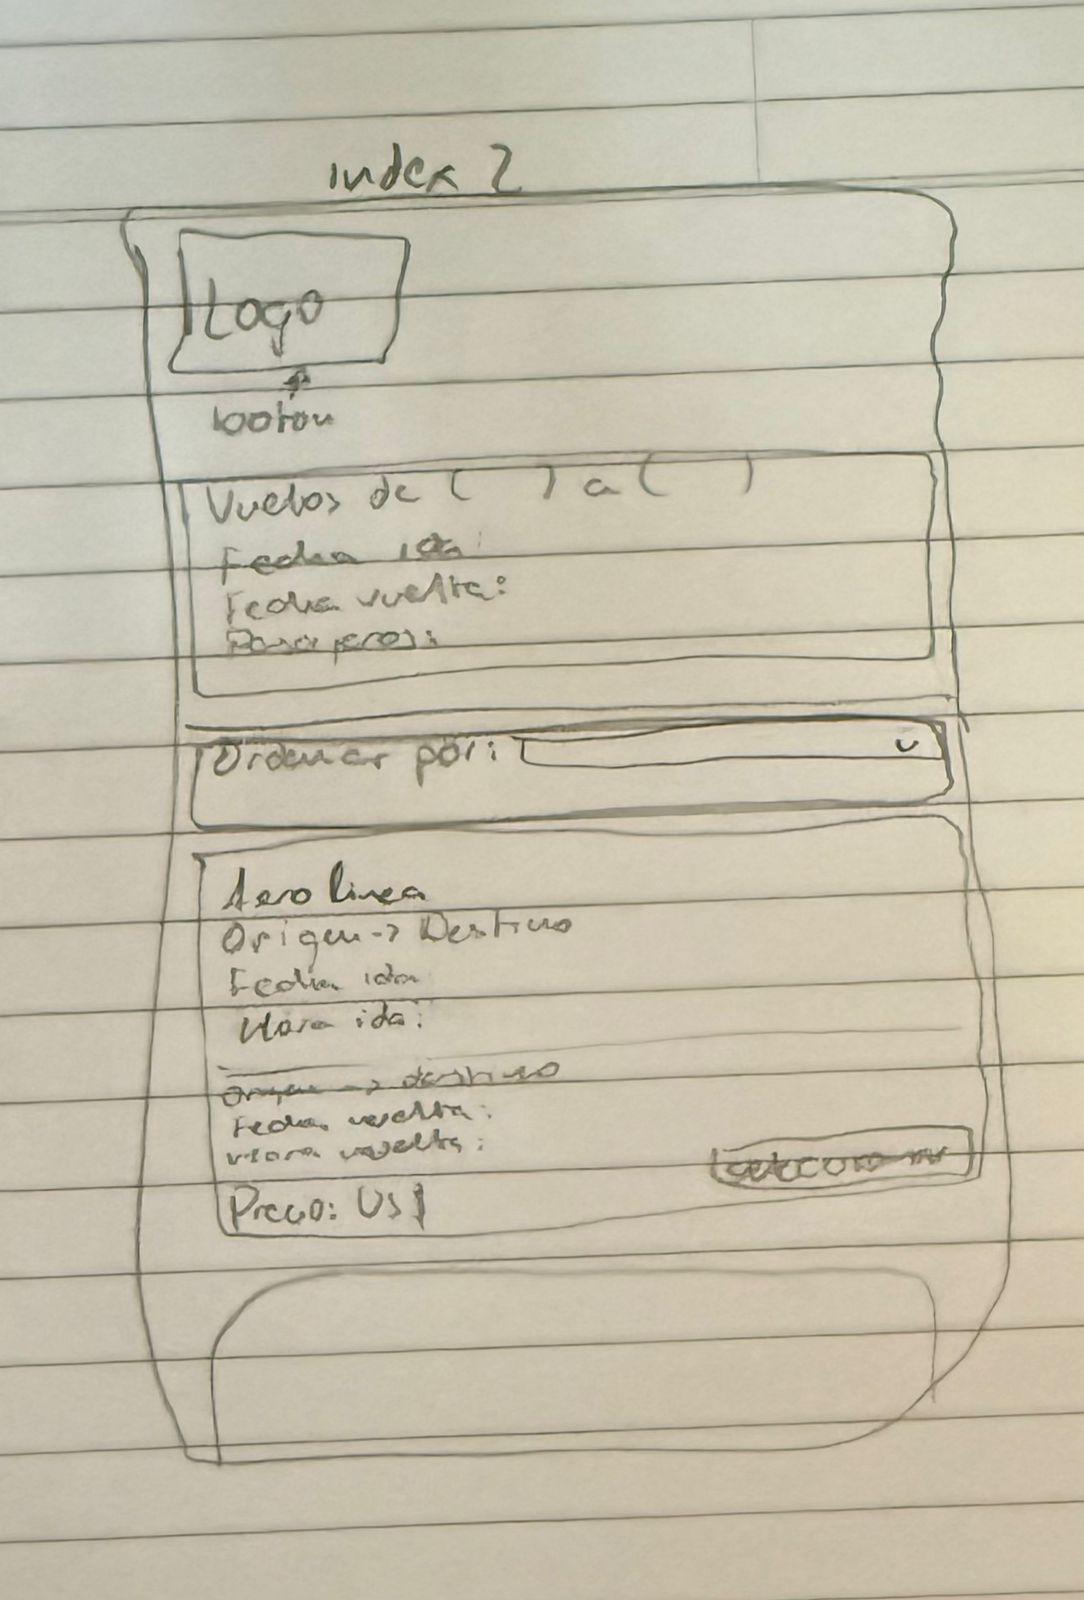 index 2
Logo
boton
Vuelos de (       ) a (       )
Fecha ida:
Fecha vuelta:
Pasajeros:
Ordenar por:
Aerolinea
Origen -> Destino
Fecha ida
Hora ida:
Origen -> destino
Fecha vuelta:
Hora vuelta:
Seleccionar
Precio: US$